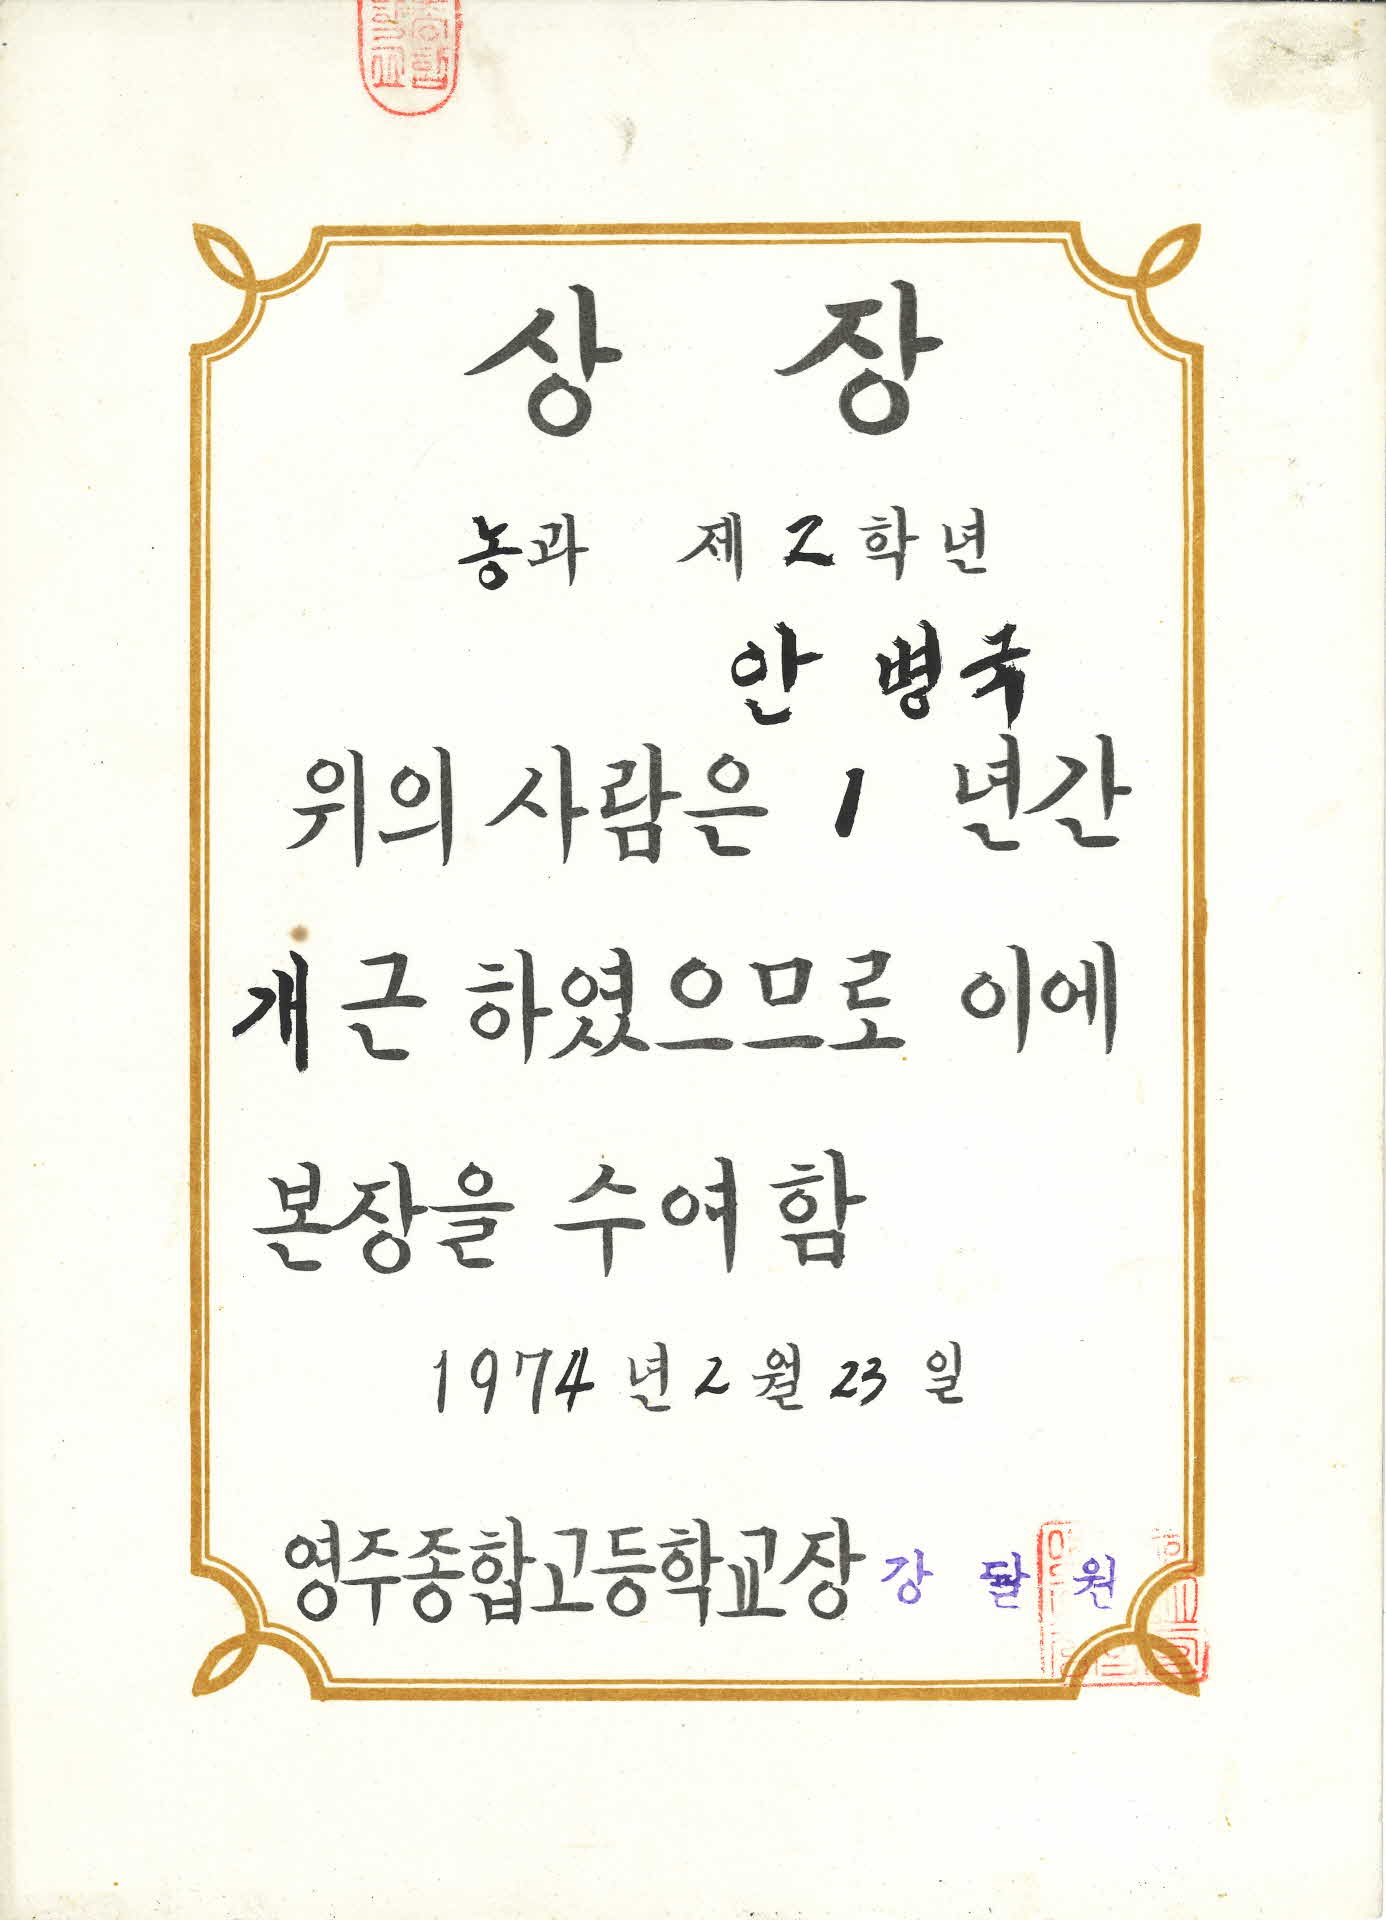 상 장
농과 제2학년
안 병국
위의 사람은 1 년간
개근 하였으므로 이에
본장을 수여함
1974년 2월 23일
영주종합고등학교장 강 달 원